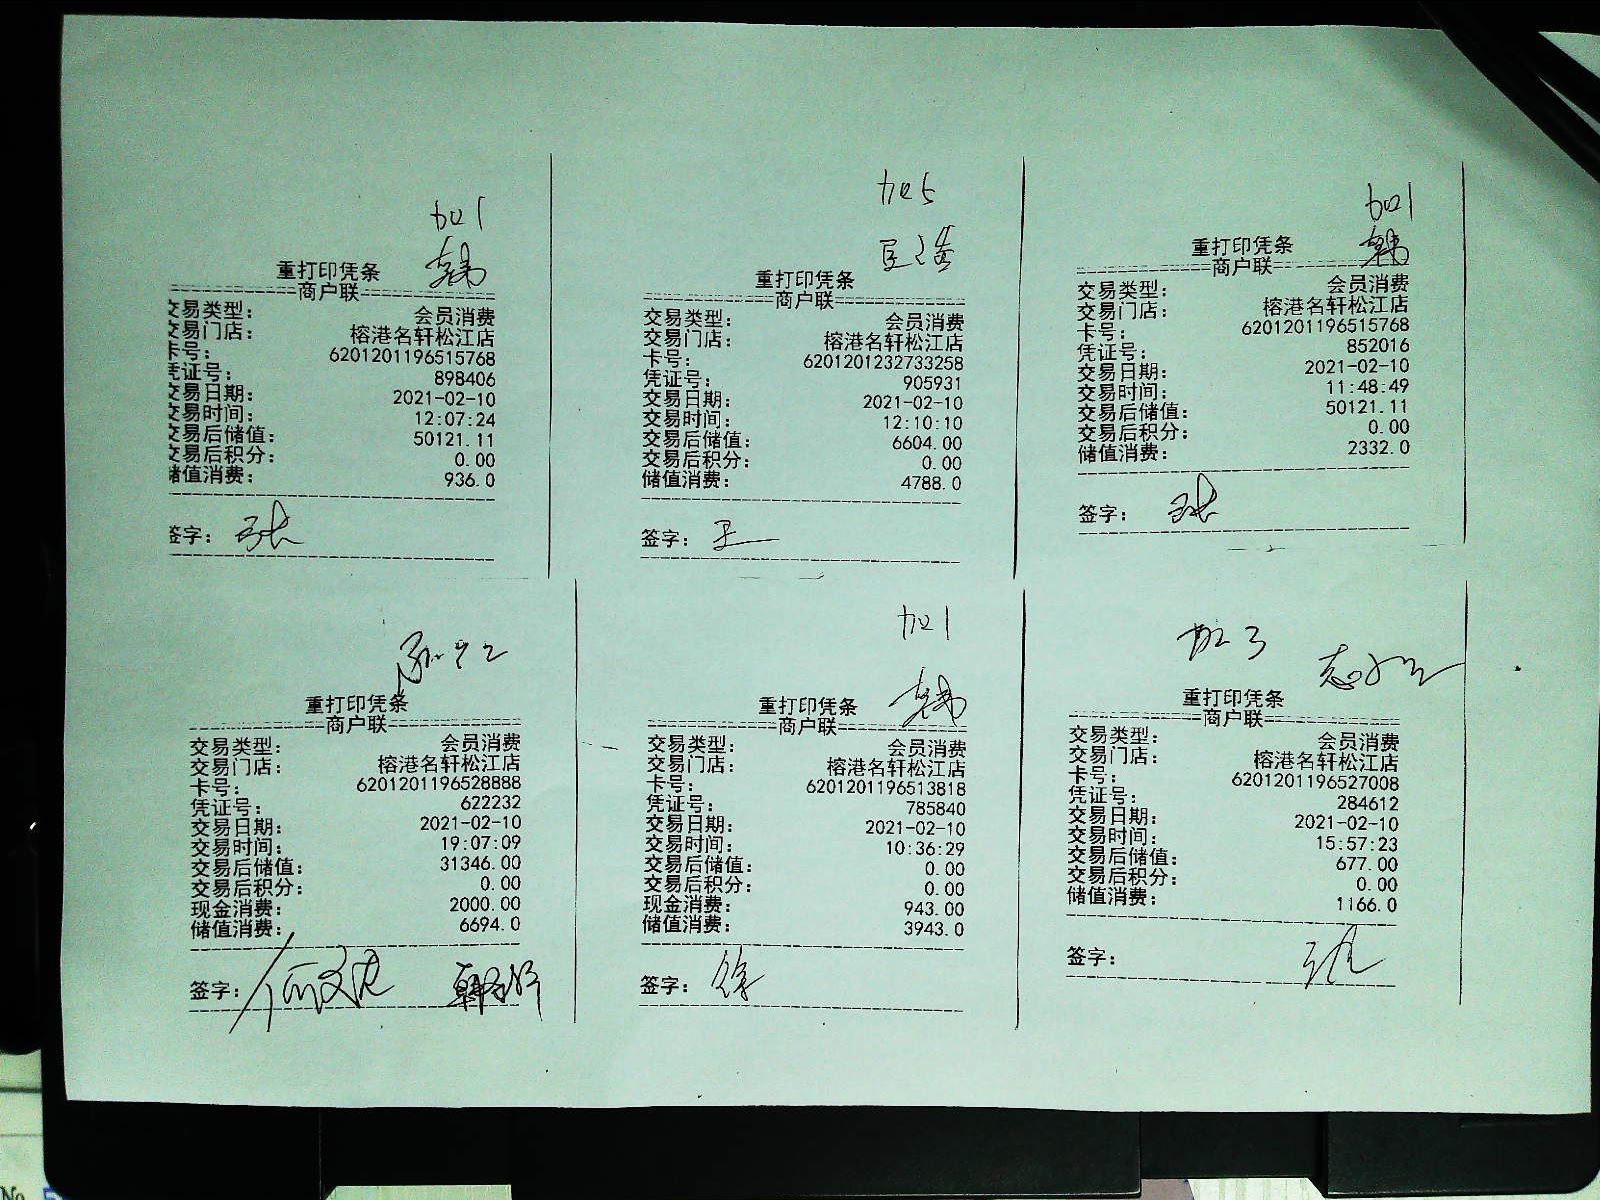 加1
韩
重打印凭条
商户联
交易类型: 会员消费
交易门店: 榕港名轩松江店
卡号: 6201201196515768
凭证号: 898406
交易日期: 2021-02-10
交易时间: 12:07:24
交易后储值: 50121.11
交易后积分: 0.00
储值消费: 936.0
签字: 张
加5
重打印凭条
商户联
交易类型: 会员消费
交易门店: 榕港名轩松江店
卡号: 6201201232733258
凭证号: 905931
交易日期: 2021-02-10
交易时间: 12:10:10
交易后储值: 6604.00
交易后积分: 0.00
储值消费: 4788.0
签字: 王
加1
韩
重打印凭条
商户联
交易类型: 会员消费
交易门店: 榕港名轩松江店
卡号: 6201201196515768
凭证号: 852016
交易日期: 2021-02-10
交易时间: 11:48:49
交易后储值: 50121.11
交易后积分: 0.00
储值消费: 2332.0
签字: 张
重打印凭条
商户联
交易类型: 会员消费
交易门店: 榕港名轩松江店
卡号: 6201201196528888
凭证号: 622232
交易日期: 2021-02-10
交易时间: 19:07:09
交易后储值: 31346.00
交易后积分: 0.00
现金消费: 2000.00
储值消费: 6694.0
签字:
加1
韩
重打印凭条
商户联
交易类型: 会员消费
交易门店: 榕港名轩松江店
卡号: 6201201196513818
凭证号: 785840
交易日期: 2021-02-10
交易时间: 10:36:29
交易后储值: 0.00
交易后积分: 0.00
现金消费: 943.00
储值消费: 3943.0
签字: 徐
重打印凭条
商户联
交易类型: 会员消费
交易门店: 榕港名轩松江店
卡号: 6201201196527008
凭证号: 284612
交易日期: 2021-02-10
交易时间: 15:57:23
交易后储值: 677.00
交易后积分: 0.00
储值消费: 1166.0
签字:
No